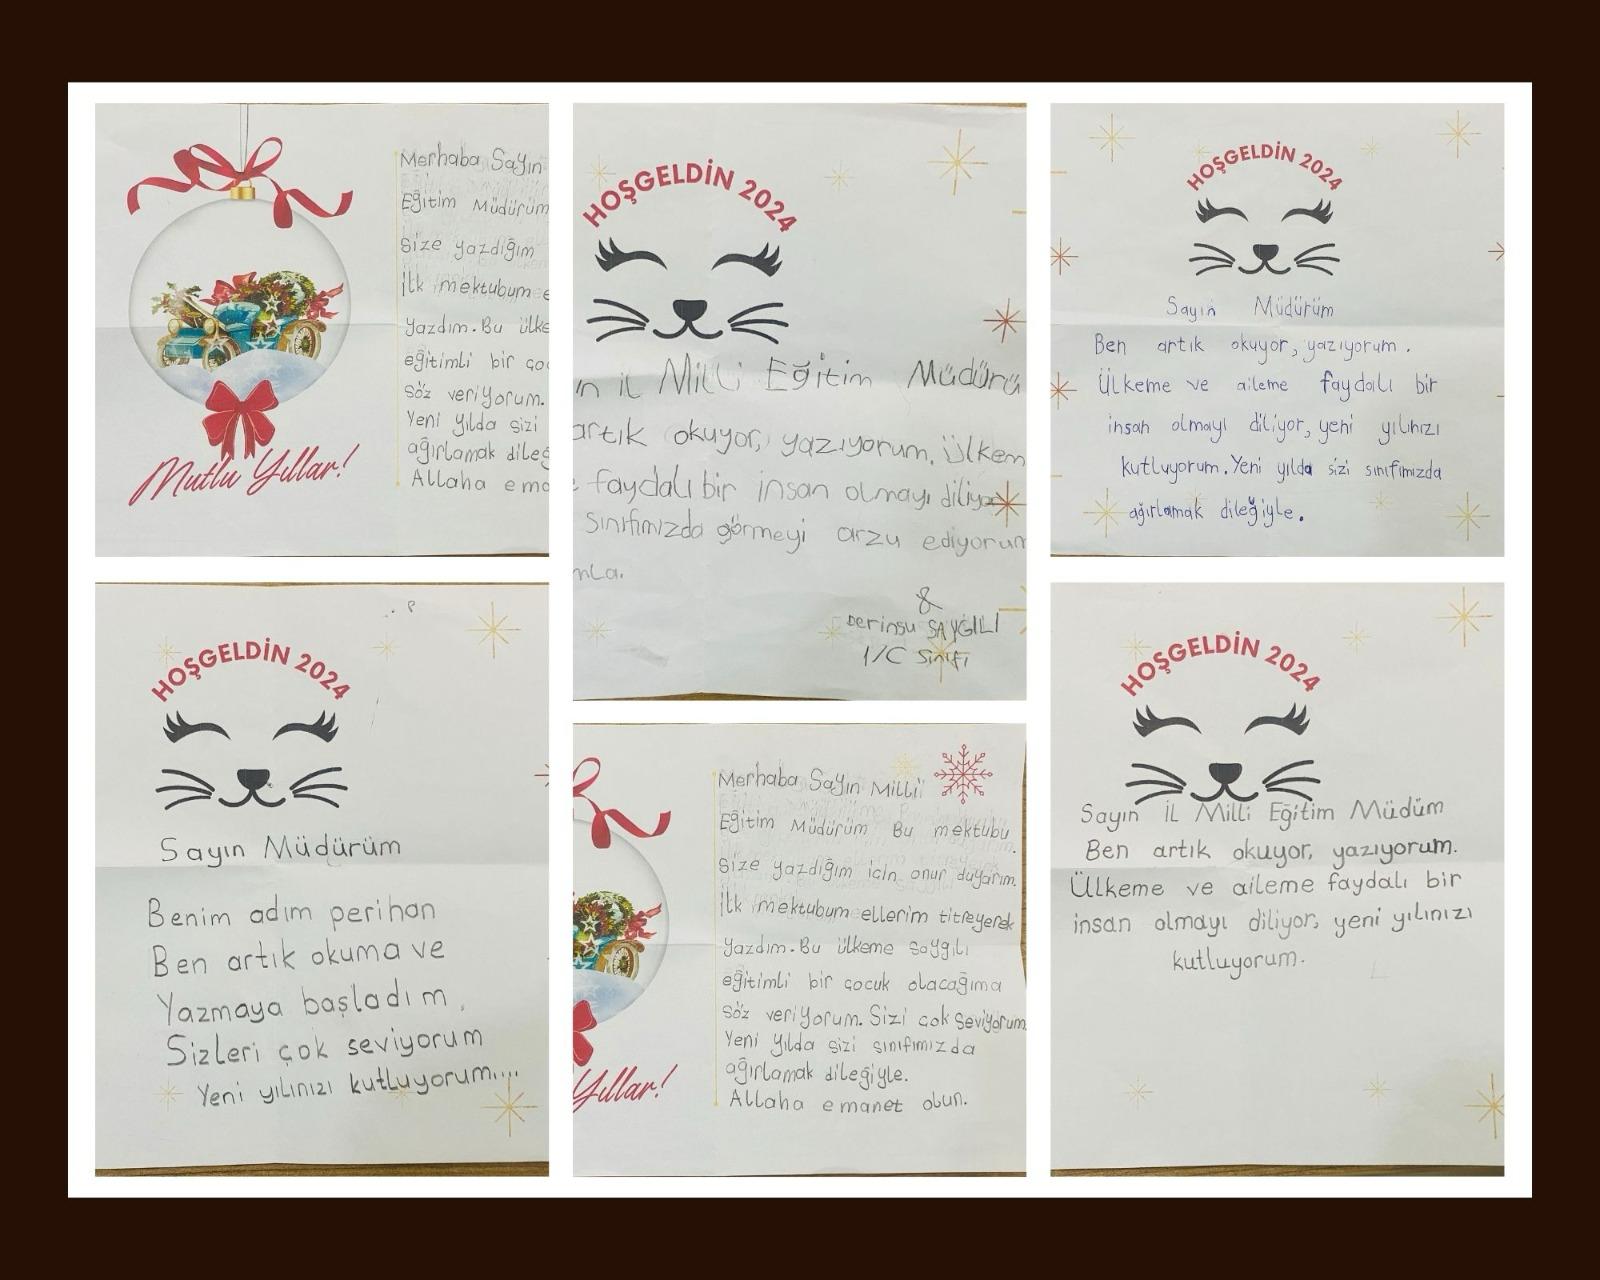 Merhaba Sayın
Eğitim Müdürüm
Size yazdığım
İlk mektubum e
yazdım. Bu ülke
eğitimli bir ço
söz veriyorum.
Yeni Yılda sizi
ağırlamak dileğ
Allaha ema
Mutlu Yıllar!
HOŞGELDİN 2024
n il Milli Eğitim Müdürü
artık okuyor, yazıyorum. Ülkem
e faydalı bir insan olmayı diliyor
Sınıfımızda görmeyi arzu ediyorum
mla.
&
Derinsu SAYGILI
1/C sınıfı
HOŞGELDİN 2024
Sayın Müdürüm
Ben artık okuyor, yazıyorum.
Ülkeme ve aileme faydalı bir
insan olmayı diliyor, yeni yılınızı
kutluyorum. Yeni yılda sizi sınıfımızda
ağırlamak dileğiyle.
HOŞGELDİN 2024
Sayın Müdürüm
Benim adım perihan
Ben artık okuma ve
Yazmaya başladım.
Sizleri çok seviyorum
Yeni yılınızı kutluyorum....
Merhaba Sayın Milli
Eğitim Müdürüm Bu mektubu
Size yazdığım için onur duyarım.
İlk mektubum ellerim titreyerek
yazdım. Bu ülkeme saygılı
eğitimli bir çocuk olacağıma
söz veriyorum. Sizi çok seviyorum
Yeni Yılda sizi sınıfımızda
ağırlamak dileğiyle.
Allaha emanet olun.
Yıllar!
HOŞGELDİN 2024
Sayın İL Milli Eğitim Müdüm
Ben artık okuyor, yazıyorum.
Ülkeme ve aileme faydalı bir
insan olmayı diliyor, yeni yılınızı
kutluyorum.